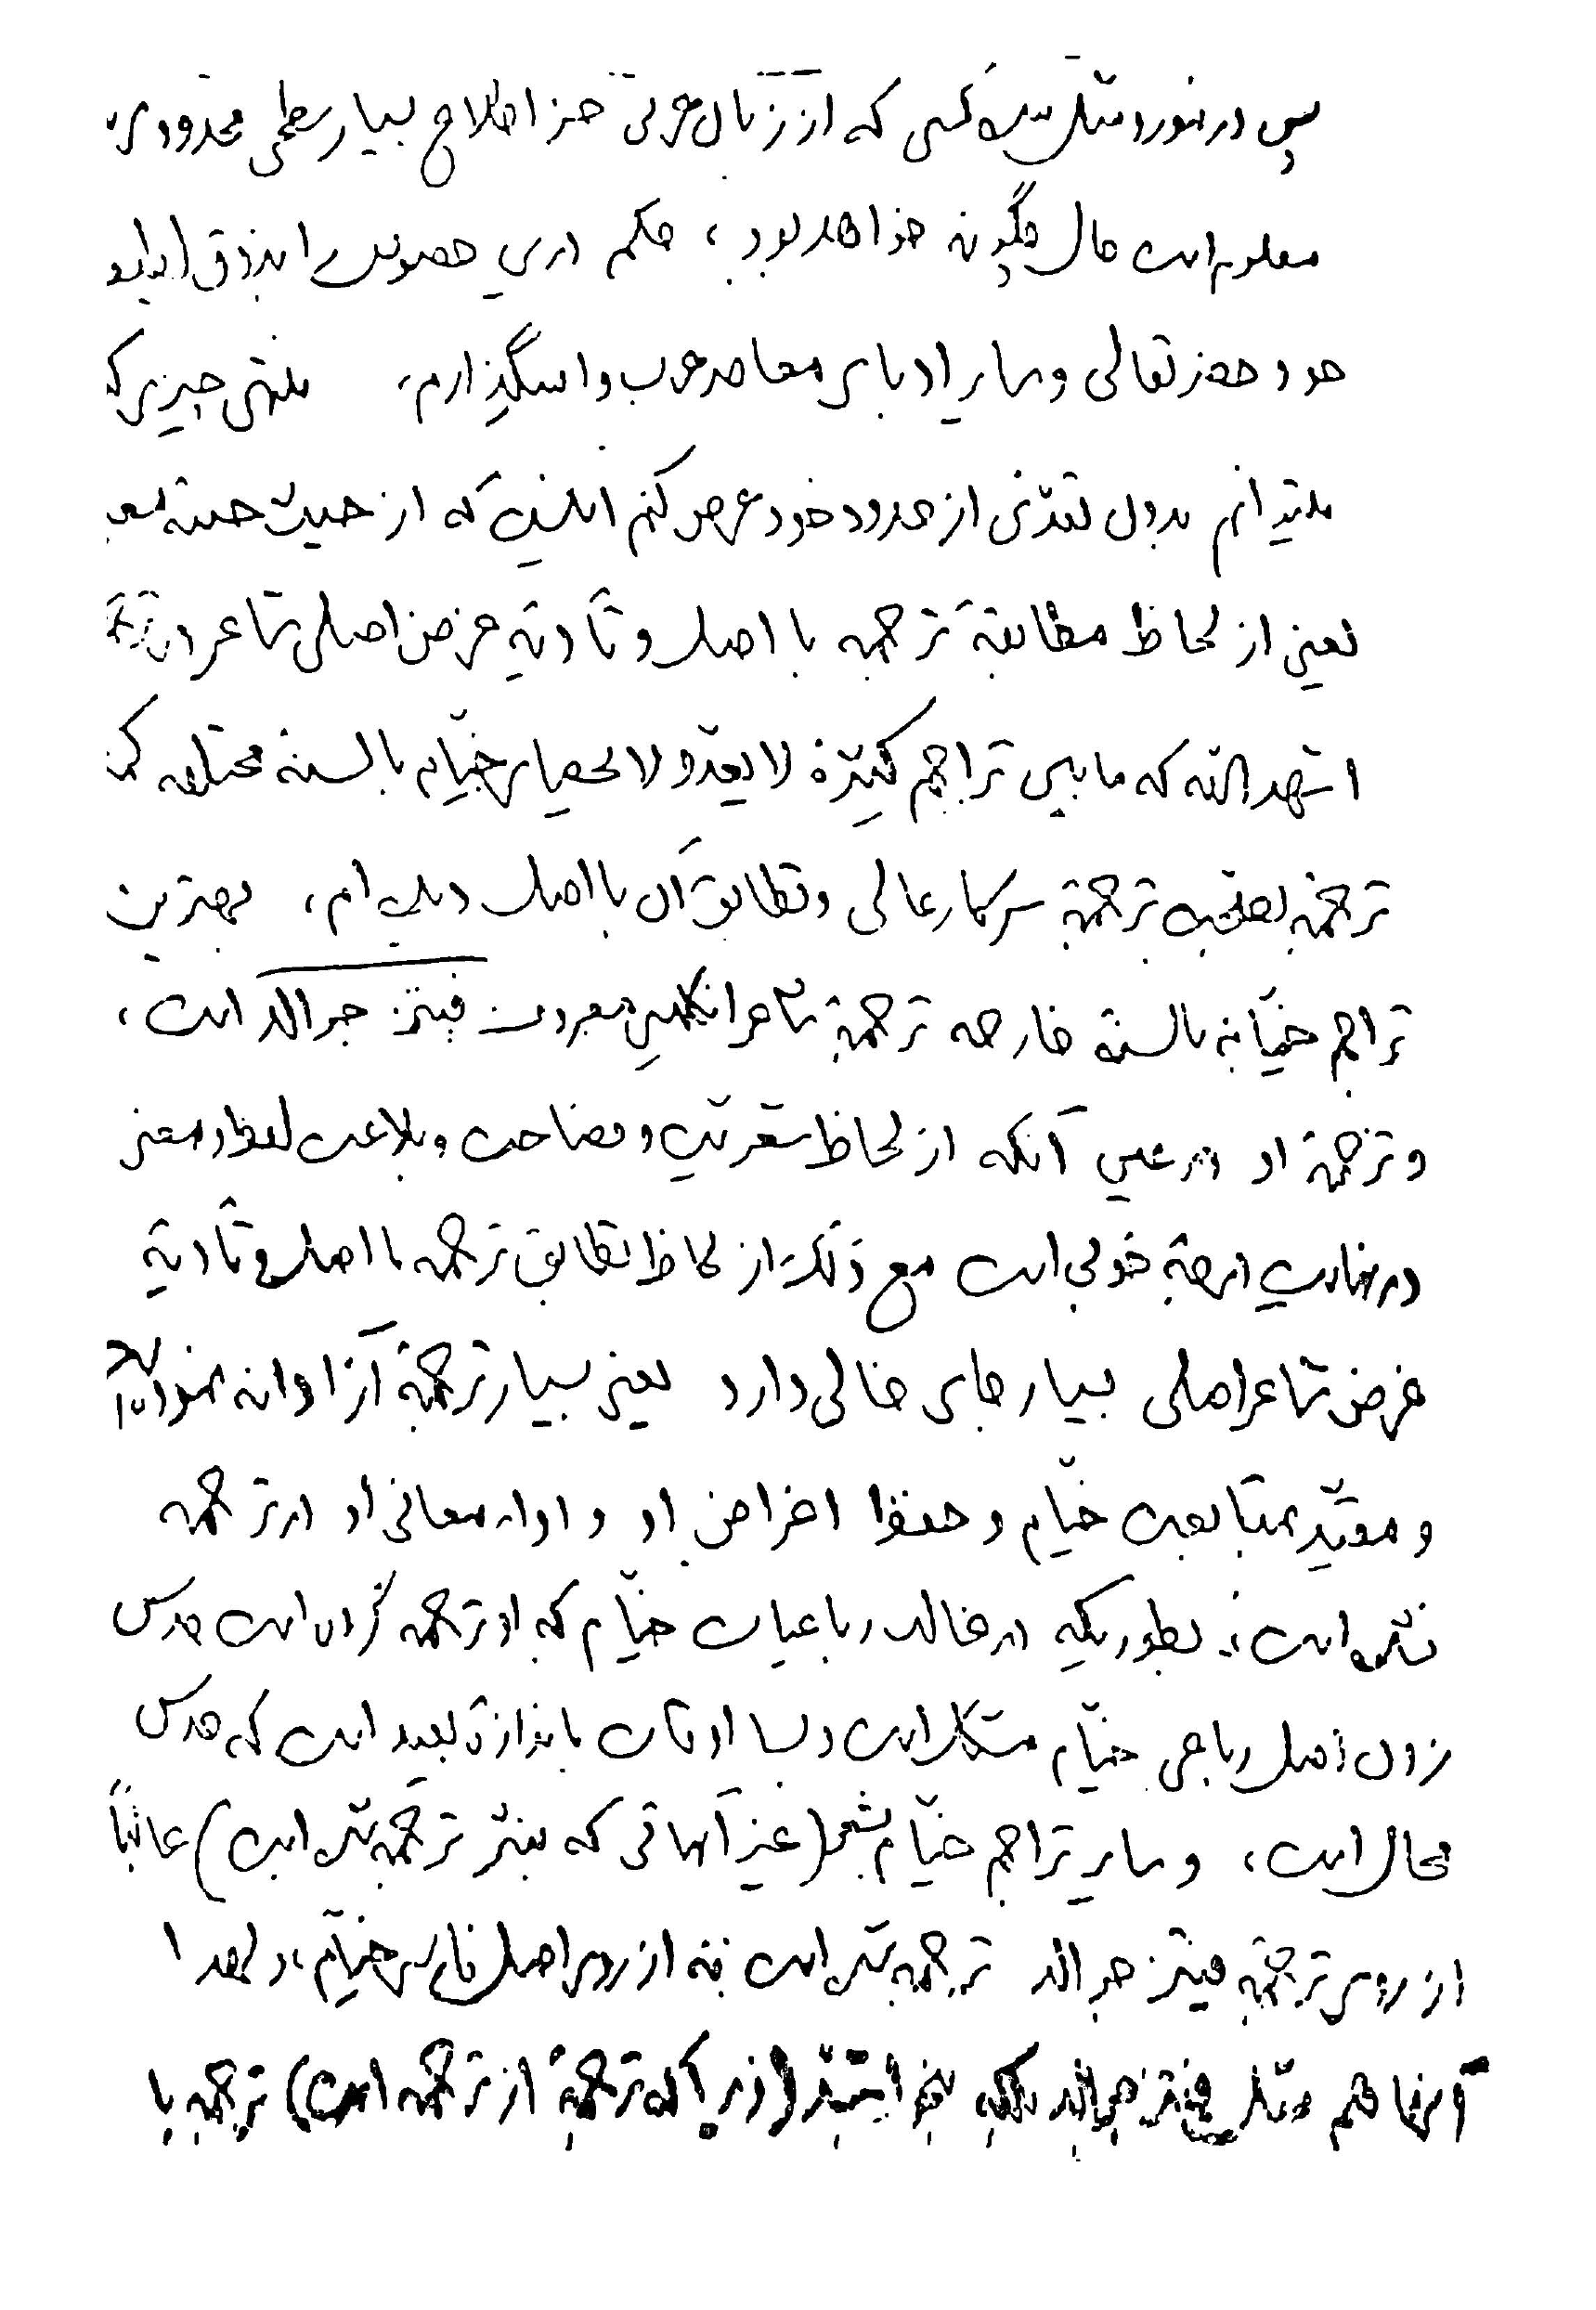 پس در مورد مثل من کسی که از زبان عربی جز اطلاع بسیار سطحی محدودی
معلوم است حال چگونه خواهد بود، حکم درین خصوص را بذوق
خود حضرتعالی و سایر ادبای معاصر عرب وامیگذارم، منتهی چیزی که
میتوانم بدون تعدّی از حدود خود عرض کنم اینست که از حیث جنبه
یعنی از لحاظ مطابقهٔ ترجمه با اصل و تأدیهٔ غرض اصلی شاعر در ترجمه
اشهد بالله که مابین تراجم کثیرهٔ لا یعدّ و لا یحصای خیّام بالسنهٔ مختلفه کمتر
ترجمهٔ بخوبی ترجمهٔ سرکار عالی و تطابق آن با اصل دیده‌ام، بهترین
تراجم خیّام بالسنهٔ خارجه ترجمهٔ شاعر انگلیسی معروف فیتز جرالد است،
و ترجمهٔ او در عین آنکه از لحاظ شعریّت و فصاحت و بلاغت لفظ و معنی
در نهایت درجهٔ خوبی است مع ذلک از لحاظ تطابق ترجمه با اصل و تأدیهٔ
غرض شاعر اصلی بسیار جای خالی دارد یعنی بسیار ترجمهٔ آزادانه نموده
و مقیّد بمتابعت خیّام و حفظ اغراض او و اداء معانی او در ترجمه
نشده است، بطوریکه در غالب رباعیات خیّام که او ترجمه کرده است حدس
زدن اصل رباعی خیّام مشکل است و بسا اوقات باندازهٔ بعید است که حدس
محال است، و سایر تراجم خیّام بشعر (غیر آنهائی که بنثر ترجمه شده است) غالباً
از روی ترجمهٔ فیتز جرالد ترجمه شده است نه از روی اصل فارسی خیّام، و لهذا
آنها هم مثل فیتز جرالد بلکه بیشتر (زیرا که ترجمهٔ از ترجمه است) ترجمه با